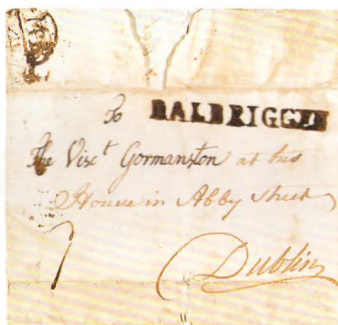 To BALBRIGGEN
The Visc.t Gormanston at his
House in Abby Street
Dublin